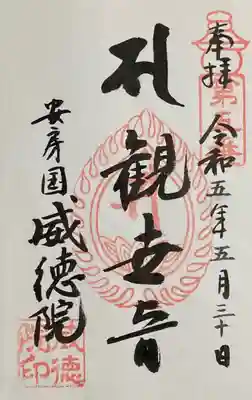 奉拝 令和五年五月三十日
観世音
安房国 威徳院
威徳院印